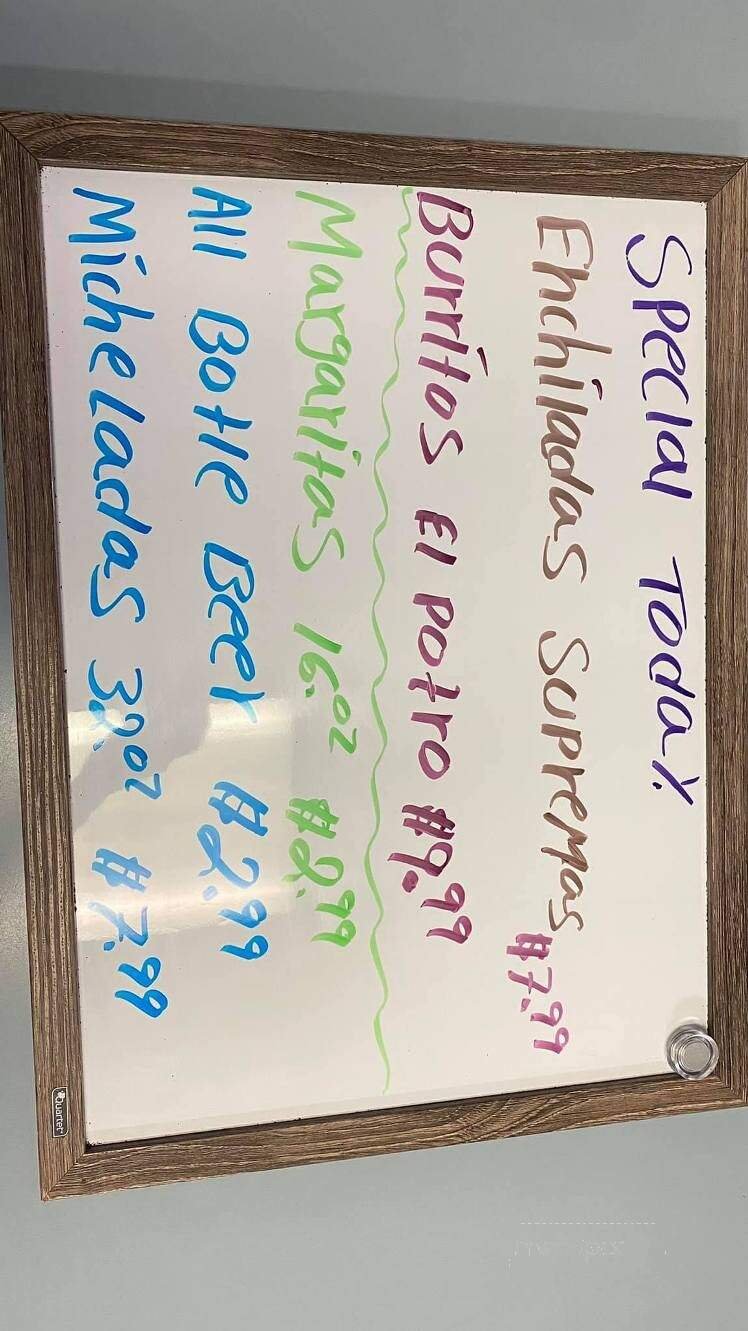 Special Today.
Enchiladas Supremas
#7.99
Burritos El Potro #9.99
Margaritas 16.oz #2.99
All Botle Beer #2.99
Micheladas 32.oz #7.99
Quartet